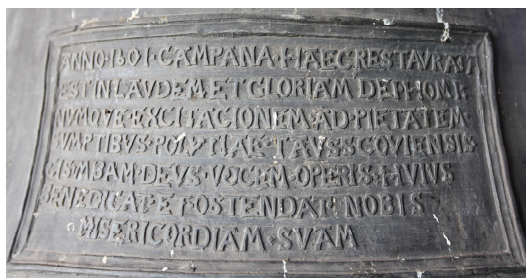 ANNO·1601·CAMPANA·HAEC RESTAVRATA
EST IN LAVDEM ET GLORIAM DEI·HOMI
NVMQVE·EXCITACIONEM·AD·PIETATEM·
SVMPTIBVS·
DEVS·VOCEM·OPERIS·HVIVS
BENEDICAT ET OSTENDAT·NOBIS
MISERICORDIAM·SVAM